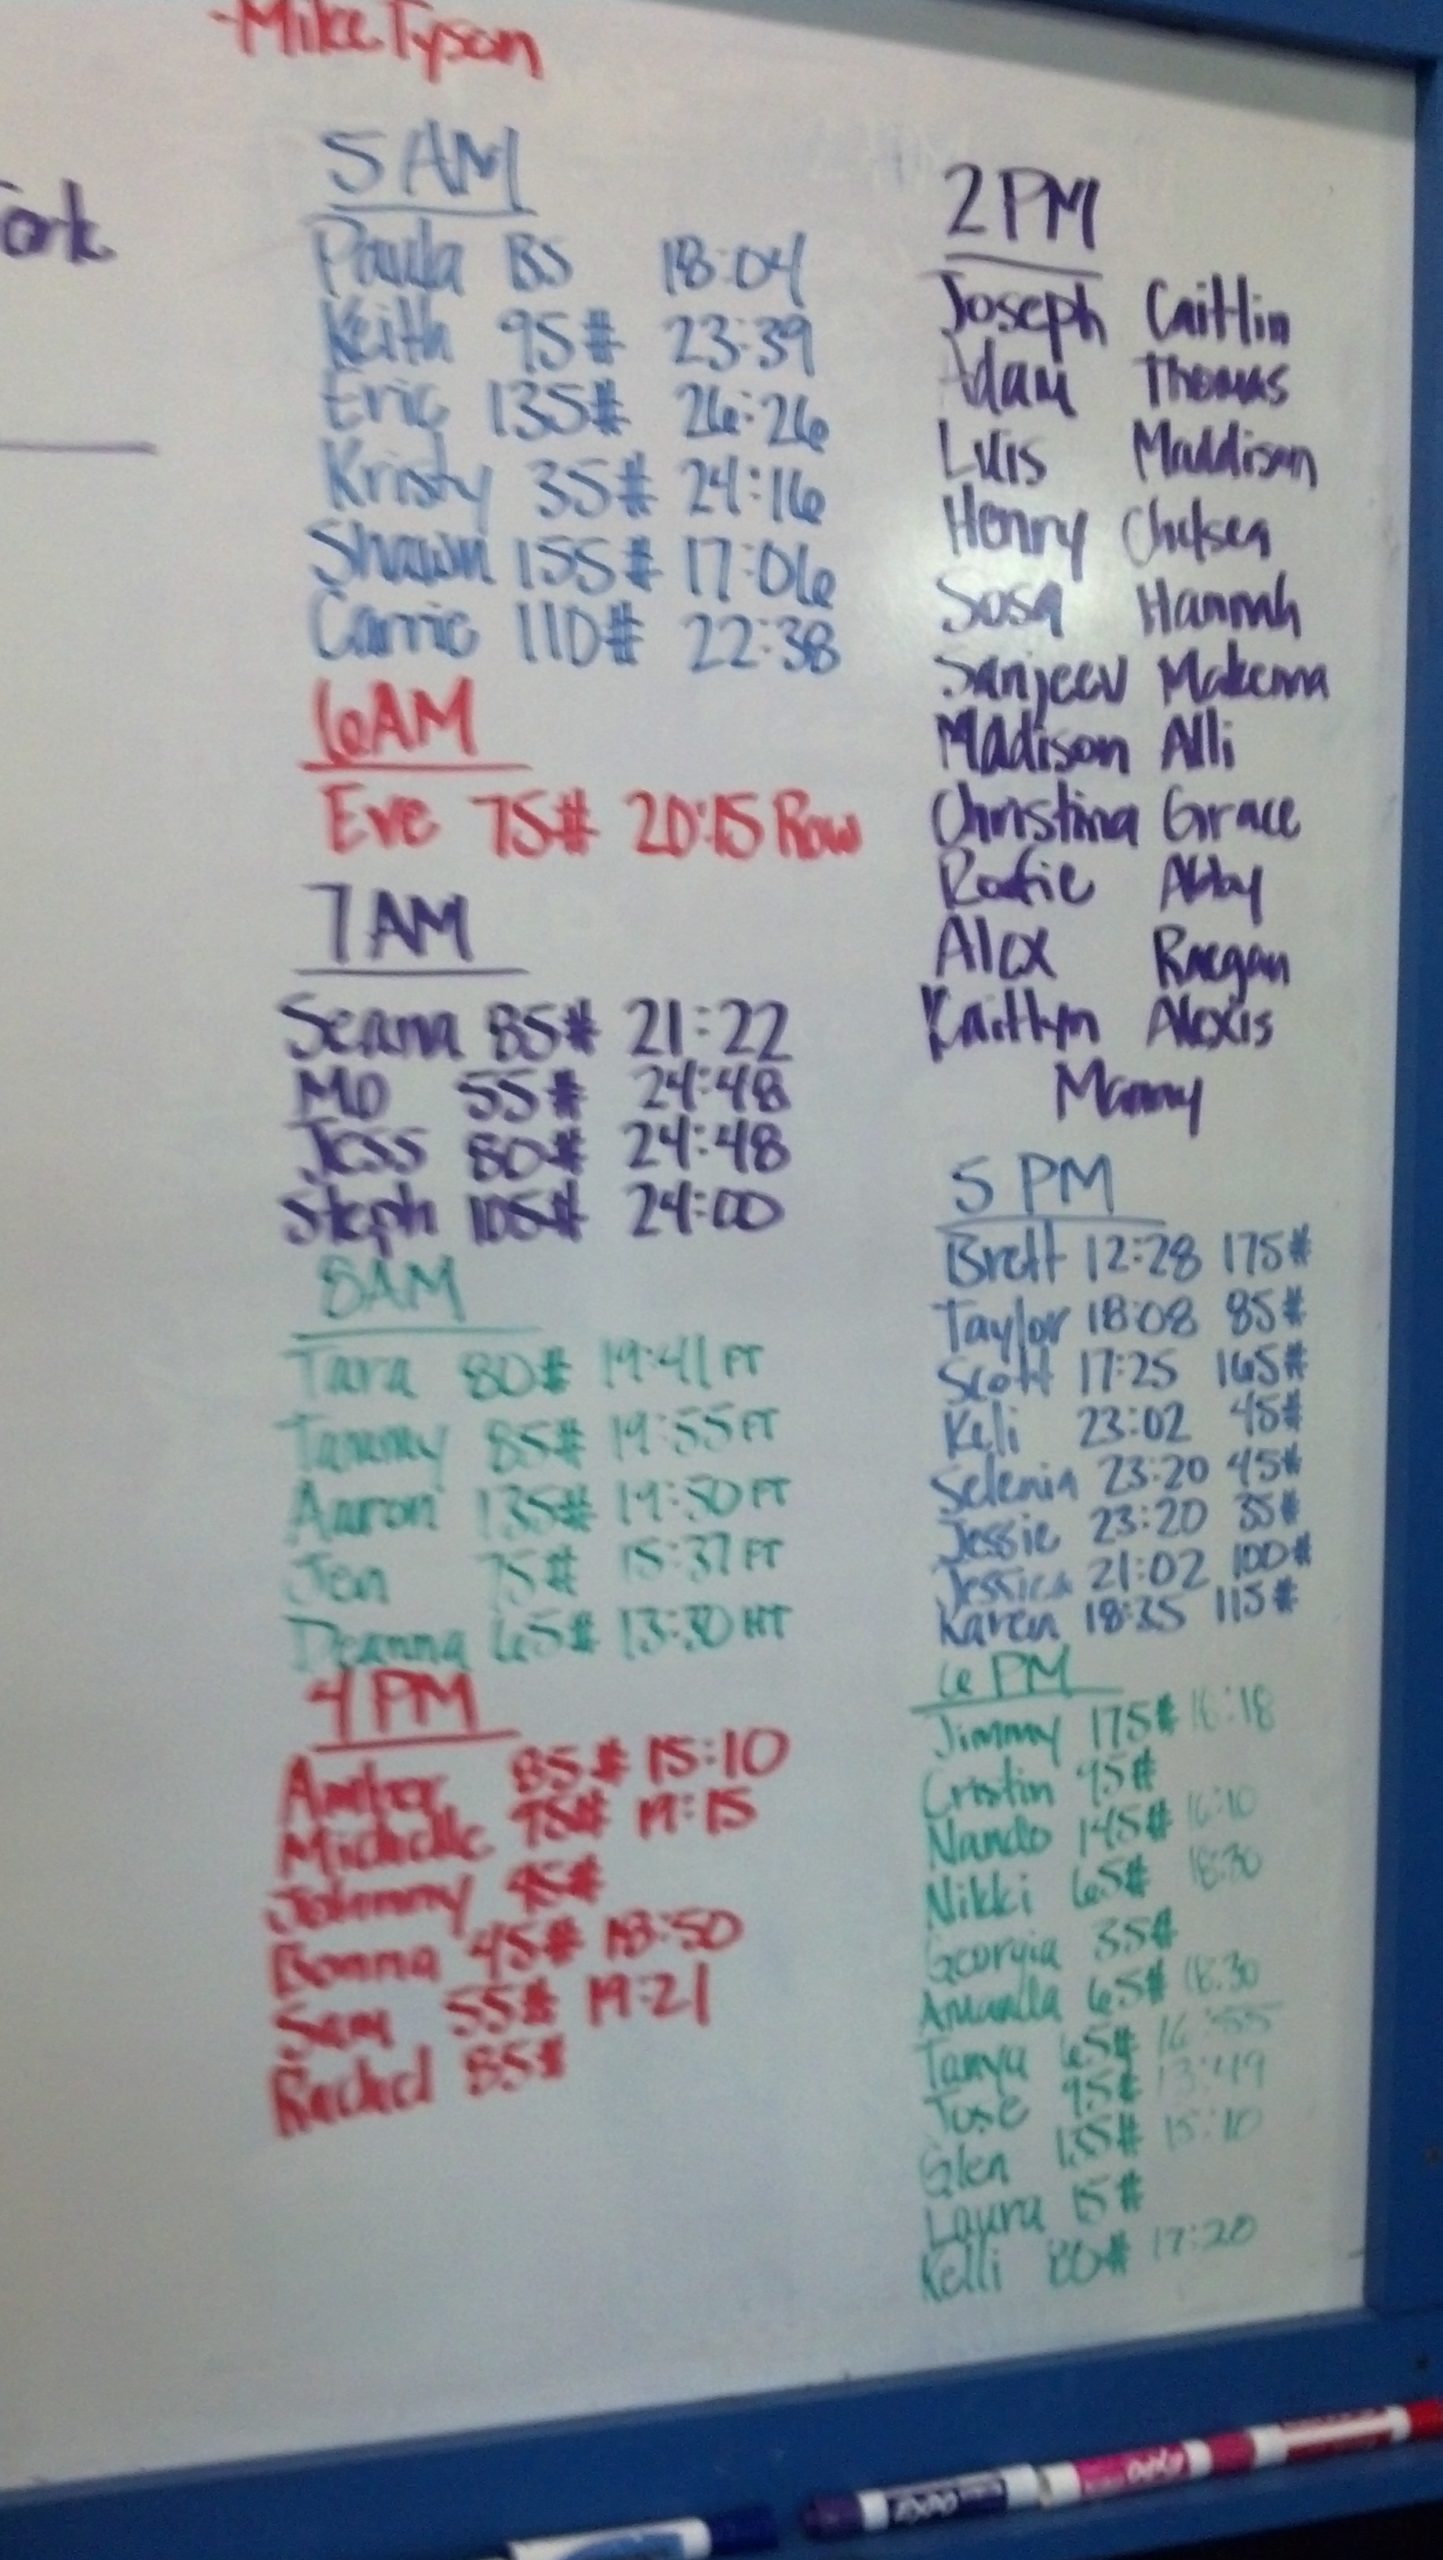 -Mike Tyson
ork
5 AM
Paula BS 18:04
Keith 95# 23:39
Eric 135# 26:26
Kristy 35# 24:16
Shawn 155# 17:06
Carrie 110# 22:38
6AM
Eve 75# 20:15 Row
7 AM
Seana 85# 21:22
Mo 55# 24:48
Jess 80# 24:48
Steph 105# 24:00
8AM
Tara 80# 19:41 FT
Tammy 85# 19:55 FT
Aaron 135# 19:50 FT
Jen 75# 15:37 FT
Deanna 65# 13:30 HT
4 PM
Amber 85# 15:10
Michelle 95# 19:15
Johnny 95#
Donna 45# 18:50
Sam 55# 19:21
Rachel 85#
2 PM
Joseph Caitlin
Adam Thomas
Luis Maddison
Henry Chelsea
Sosa Hannah
Sanjeev Makenna
Madison Alli
Christina Grace
Abby
Alex Raegan
Kaitlyn Alexis
Manny
5 PM
Brett 12:28 175#
Taylor 18:08 85#
Scott 17:25 165#
Keli 23:02 45#
Selenia 23:20 45#
Jessie 23:20 35#
Jessica 21:02 100#
Karen 18:35 115#
6 PM
Jimmy 175# 16:18
Cristin 95#
Nando 145# 16:10
Nikki 65# 18:30
Georgia 35#
Amanda 65# 18:30
Tanya 65# 16:55
Jose 95# 13:49
Glen 135# 15:10
Laura 15#
Kelli 80# 17:20
EXPO
EXPO